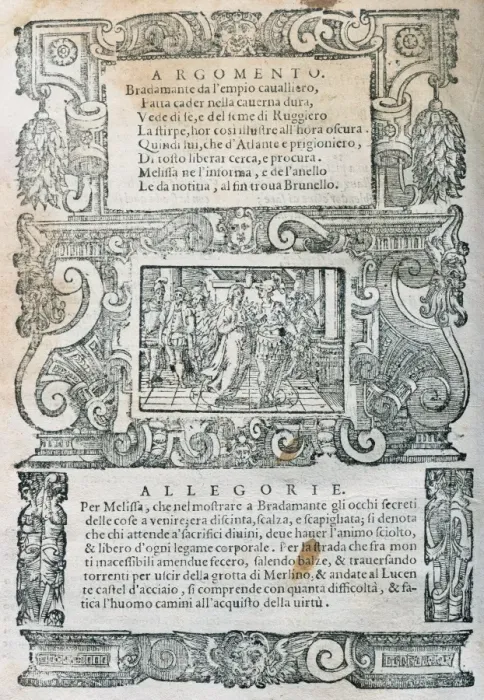 ARGOMENTO.
Bradamante da l'empio cauallliero,
Fatta cader nella cauerna dura,
Vede di se, e del seme di Ruggiero
La stirpe, hor così illustre all'hora oscura.
Quindi lui, che d'Atlante e prigioniero,
Di tosto liberar cerca, e procura.
Melissa ne l'informa, e de l'anello
Le da notitia, al fin troua Brunello.
ALLEGORIE.
Per Melissa, che nel mostrare a Bradamante gli occhi secreti
delle cose a venire; era discinta, scalza, e scapigliata; si denota
che chi attende a'sacrifici diuini, deue hauer l'animo sciolto,
& libero d'ogni legame corporale. Per la strada che fra mon
ti inacessibili amendue fecero, salendo balze, & trauersando
torrenti per uscir della grotta di Merlino, & andate al Lucen
te castel d'acciaio, si comprende con quanta difficoltà, & fa-
tica l'huomo camini all'acquisto della uirtù.